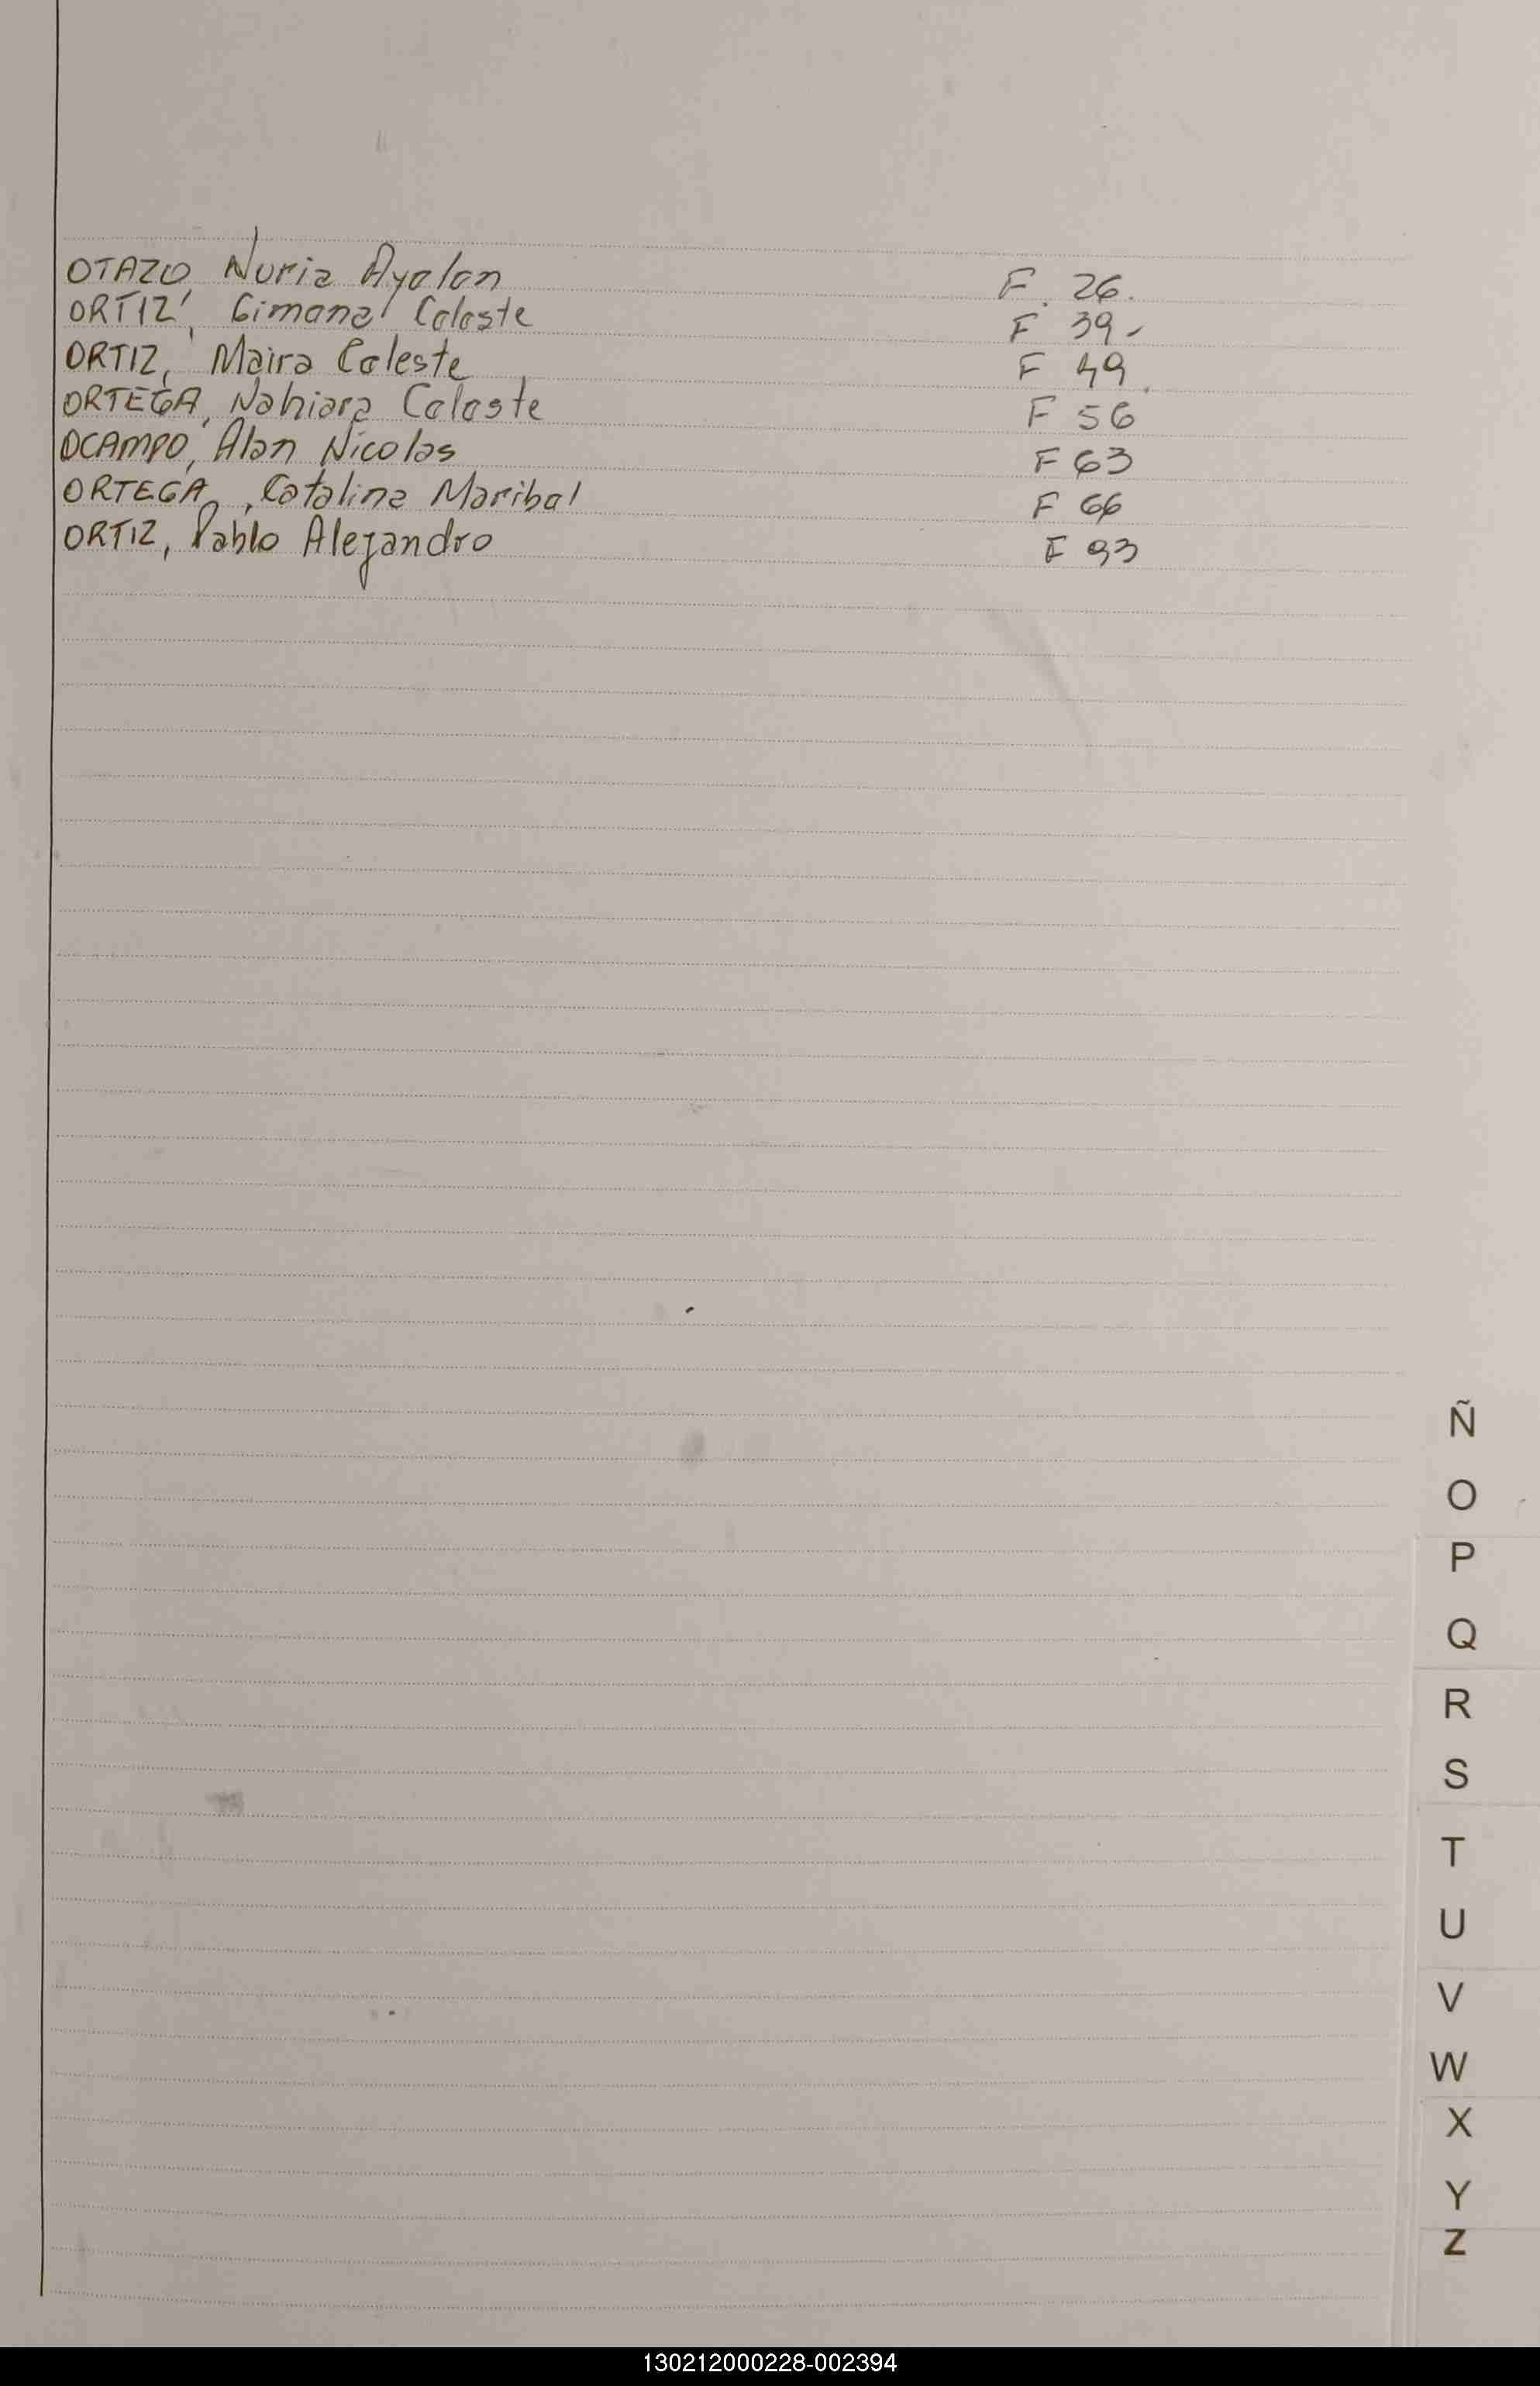 OTAZO, Nuria Ayelen F. 26.
ORTIZ, Gimena Celeste F 39-
ORTIZ, Maira Celeste F 49.
ORTEGA, Nahiara Celeste F 56
OCAMPO, Alan Nicolas F 63
ORTEGA, Catalina Maribel F 66
ORTIZ, Pablo Alejandro F 93
Ñ
O
P
Q
R
S
T
U
V
W
X
Y
Z
130212000228-002394